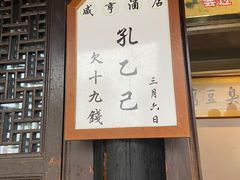 咸亨酒店
孔乙己
三月六日
欠十九錢
臭豆